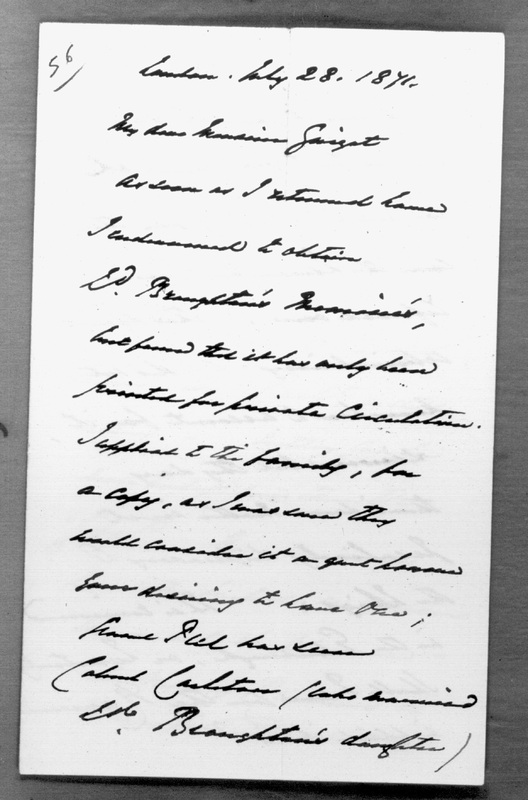 56)
London. July 28. 1871.
My dear Monsieur Guizot
As soon as I returned home
I endeavoured to obtain
Ld. Broughton's Memoirs,
but found that it has only been
printed for private Circulation.
I applied to the family, for
a copy, as I was sure they
would consider it a great honour
Your desiring to have One;
Peel has seen
Colonel Carleton (who married
Ld. Broughton's daughter)